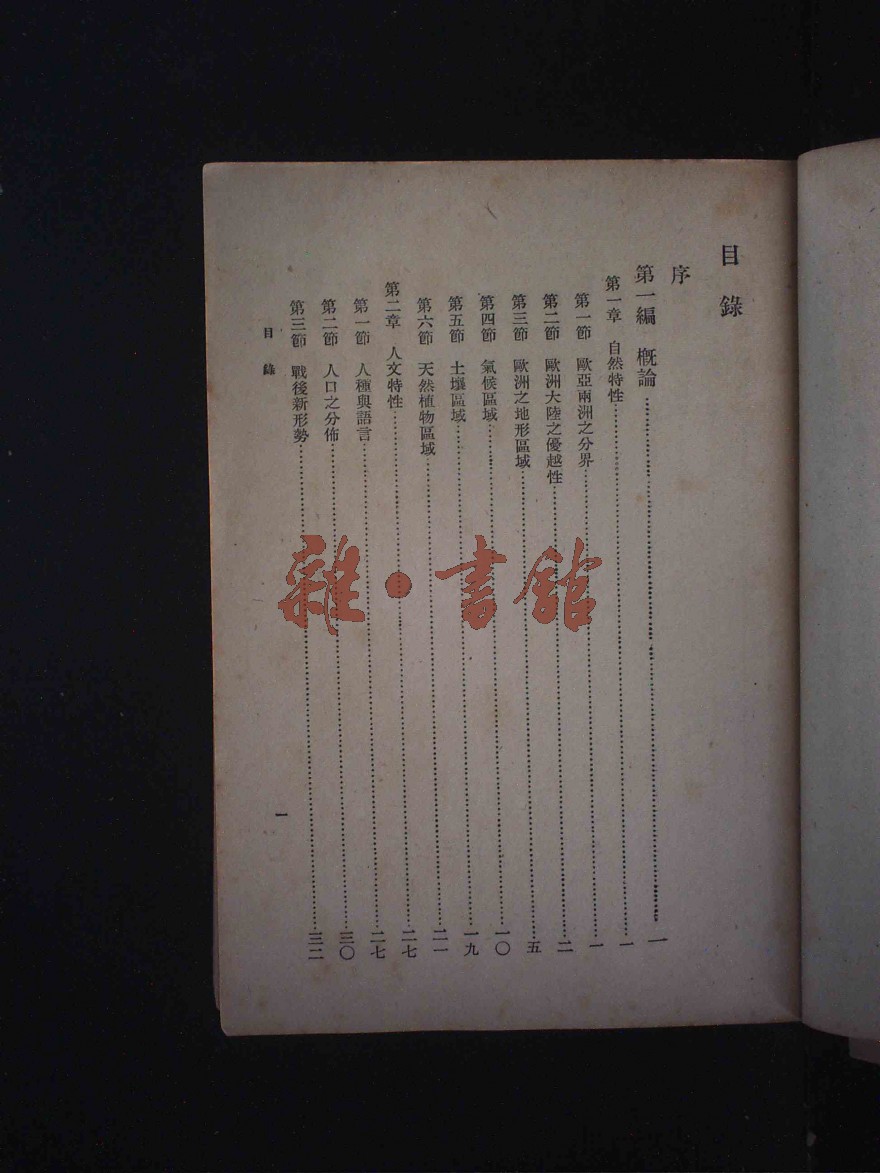 目錄
序
第一編 概論……一
第一章 自然特性……一
第一節 歐亞兩洲之分界……一
第二節 歐洲大陸之優越性……二
第三節 歐洲之地形區域……五
第四節 氣候區域……一〇
第五節 土壤區域……一九
第六節 天然植物區域……二一
第二章 人文特性……二七
第一節 人種與語言……二七
第二節 人口之分佈……三〇
第三節 戰後新形勢……三二
目錄
一
雜·書館